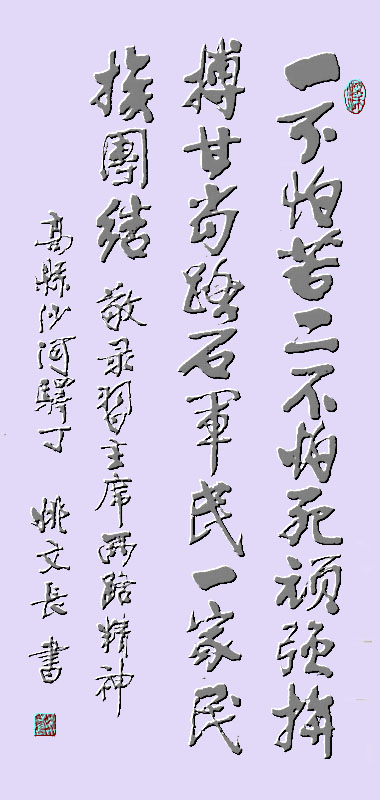 一不怕苦二不怕死顽强拚
搏甘当路石軍民一家民
族團结 敬录習主席西路精神
高縣沙河驛丁 姚文長 書